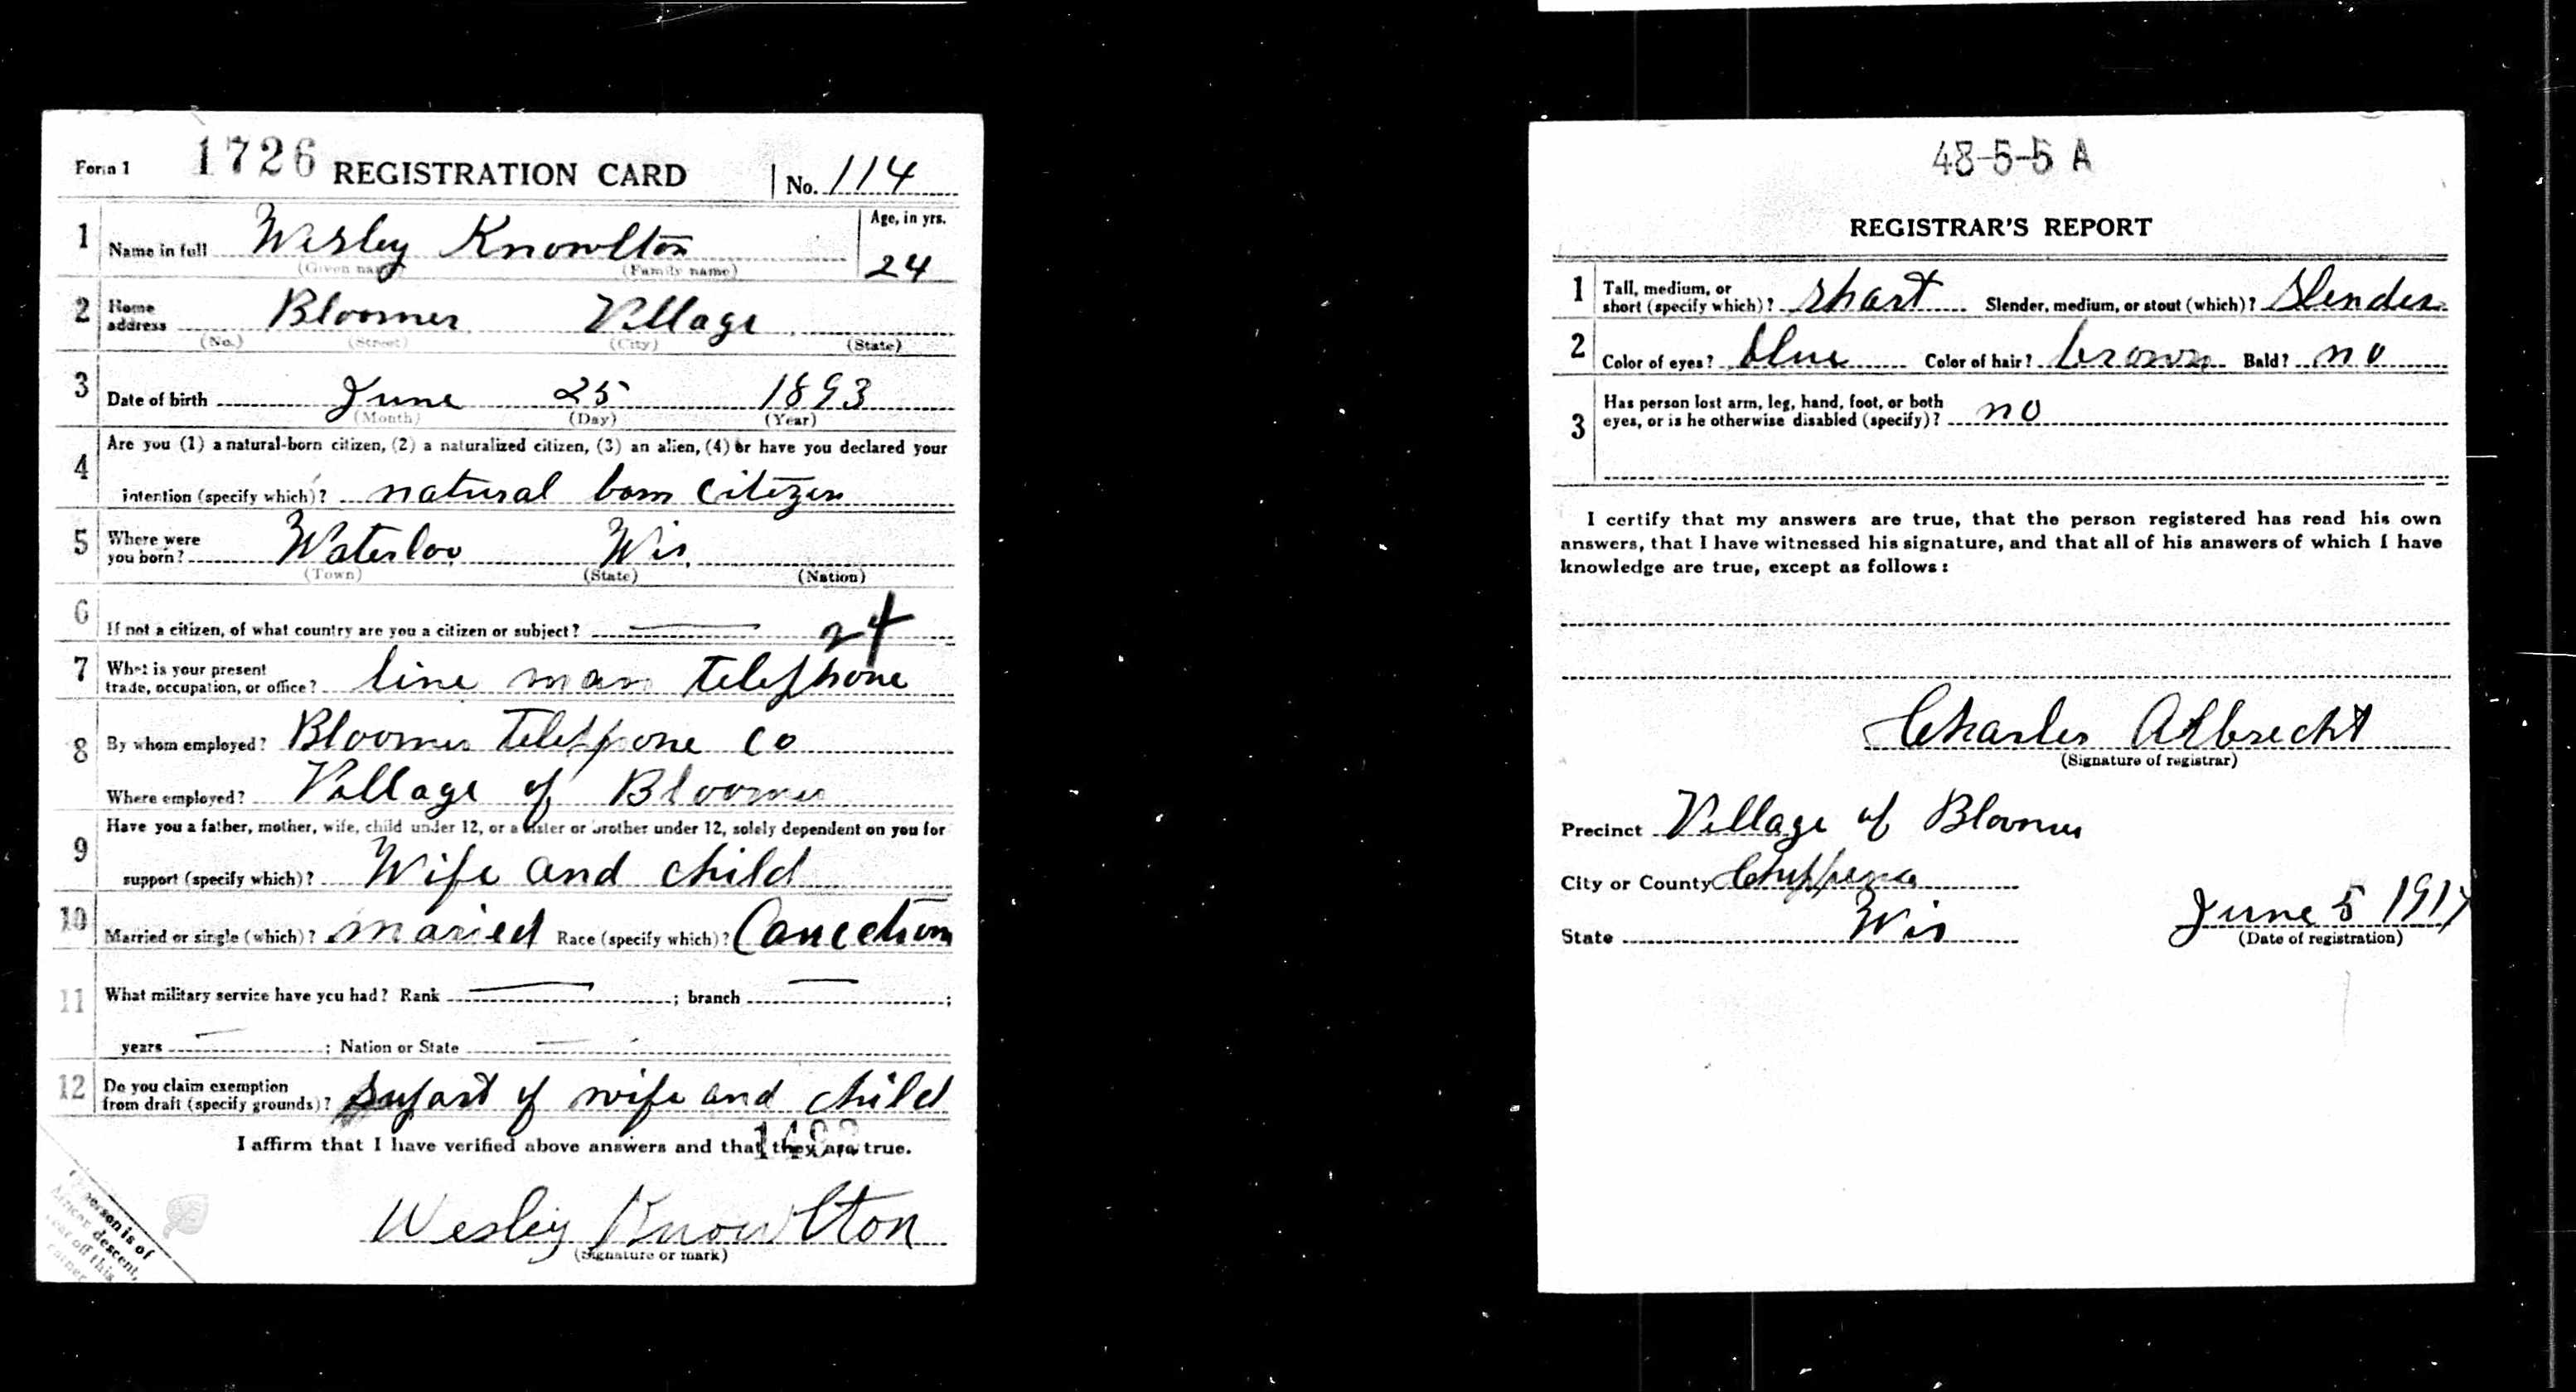 Form 1 1726 REGISTRATION CARD No. 114
1 Name in full Wesley Knowlton Age, in yrs. 24
(Given name) (Family name)
2 Home address Bloomer Village
(No.) (Street) (City) (State)
3 Date of birth June 25 1893
(Month) (Day) (Year)
4 Are you (1) a natural-born citizen, (2) a naturalized citizen, (3) an alien, (4) or have you declared your
intention (specify which)? natural born citizen
5 Where were you born? Waterloo Wis.
(Town) (State) (Nation)
6 If not a citizen, of what country are you a citizen or subject? 24
7 What is your present trade, occupation, or office? line man telephone
8 By whom employed? Bloomer Telephone Co
Where employed? Village of Bloomer
9 Have you a father, mother, wife, child under 12, or a sister or brother under 12, solely dependent on you for
support (specify which)? Wife and child
10 Married or single (which)? maried Race (specify which)?
11 What military service have you had? Rank ; branch ;
years ; Nation or State
12 Do you claim exemption from draft (specify grounds)? of wife and child
I affirm that I have verified above answers and that they are true.
Wesley Knowlton
(Signature or mark)
person is of
descent,
off this
corner
48-5-5 A
REGISTRAR'S REPORT
1 Tall, medium, or short (specify which)? short Slender, medium, or stout (which)? Slender
2 Color of eyes? blue Color of hair? brown Bald? no
3 Has person lost arm, leg, hand, foot, or both eyes, or is he otherwise disabled (specify)? no
I certify that my answers are true, that the person registered has read his own
answers, that I have witnessed his signature, and that all of his answers of which I have
knowledge are true, except as follows:
Charles Albrecht
(Signature of registrar)
Precinct Village of Bloomer
City or County Chippewa
State Wis June 5 1917
(Date of registration)